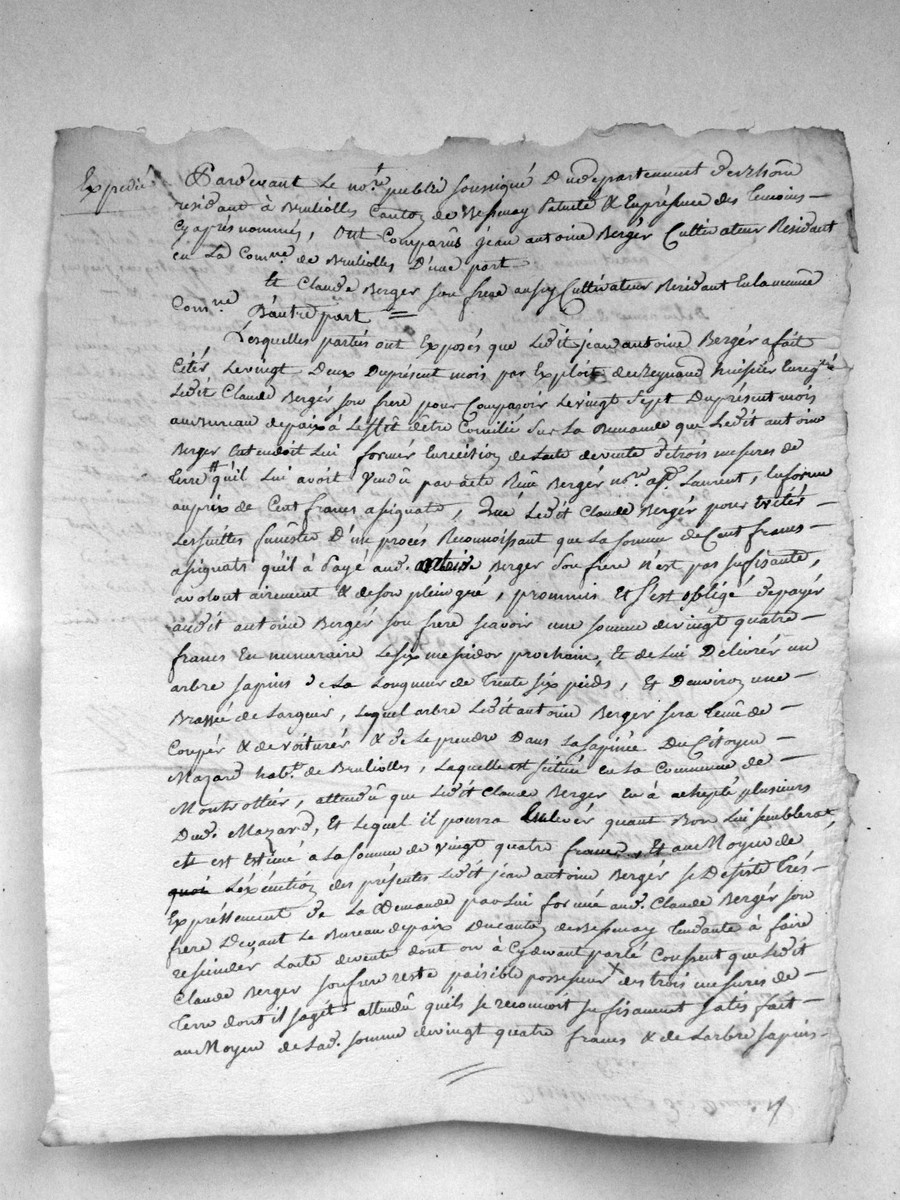 Expedié
Pardevant Le nore. publié soussigné Du departement du rhône
residant à Bruliolles Canton de Bessenay Patenté & En présence des temoins
Cy après nommés, Ont Comparûs jean antoine Bergér Cultivateur Residant
en La Comne. de Bruliolles D'une part
Et Claude Berger son frere aussy Cultivateur Residant En la même
Comne. D'autre part =
Lesquelles partiés ont Exposés que Ledit jean antoine Bergér a fait
Citér Le vingt Deux Du présent mois par Exploit de Reynard huissier Enregtré
Ledit Claude Bergér son frere pour Comparoir Le vingt Sept Du présent mois
au Bureau de paix à L'effêt d'être Concilié Sur La Demande que Ledit antoine
Berger Entendoit Lui formér En récision de L'acte de vente de trois mesures de
Terre qu'il Lui avoit Vendû par acte Reçû Bergér nore. a St. Laurent, En forme
au prix de Cent francs assignats, Que Ledit Claude Bergér pour evitér
Les suittes funêstes D'un procés Reconnoissant que La somme de Cent francs
assignats qu'il à Payé aud. antoine Berger Son frere n'est pas suffisante,
a volontairement & de son plein gré, prommis Et S'est obligé de payér
audit antoine Bergér son frere scavoir une somme de vingt quatre
francs En numeraire Le six messidor prochain, Et de Lui Délivrér un
arbre sapins de La Longueur de Trente six pieds, Et D'environ une
Brassée de Largeur, Lequel arbre Ledit antoine Berger sera tenû de
Coupér & de voiturér & de Le prendre Dans La sapinée Du Citoyen
Mazard habt. de Bruliolles, Laquelle est Scituée en La Commune de
Montrottier, attendû que Ledit Claude Berger En à achepté plusieurs
Dud. Mazard, Et Lequel il pourra Enlevér quant Bon Lui semblerat,
Et est Estimé a La somme de vingt quatre francs, Et au Moyen de
quoi L'exécution des présentes Ledit jean antoine Bergér se Désiste Trés
Expréssement de La Demande par Lui formée aud. Claude Bergér son
frere Devant Le Bureau de paix Du Canton de Bessenay Tendante à faire
rescinder L'acte de vente dont on à Cy devant parlé Consent que Ledit
Claude Berger son frere reste paisible possesseur des trois mesures de
Terre dont il sagit attendû qu'ils se reconnoit suffisamment satisfait
au Moyen de Lad. somme de vingt quatre francs & de L'arbre sapins